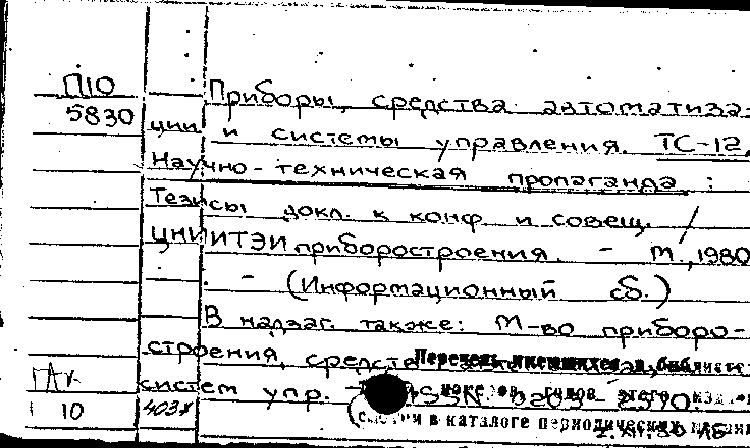 П10
5830
Приборы, средства автоматиза-
ции и системы управления. ТС-12.
Научно-техническая пропаганда :
Тезисы докл. к конф. и совещ. /
ЦНИИТЭИ приборостроения. - М., 1980
. - (Информационный сб.)
В надзаг. также: М-во приборо-
строения, средств
Перечень имеющихся в библиоте-
систем упр. -
номеров, годов этого изд
10 403х
в каталоге периодических